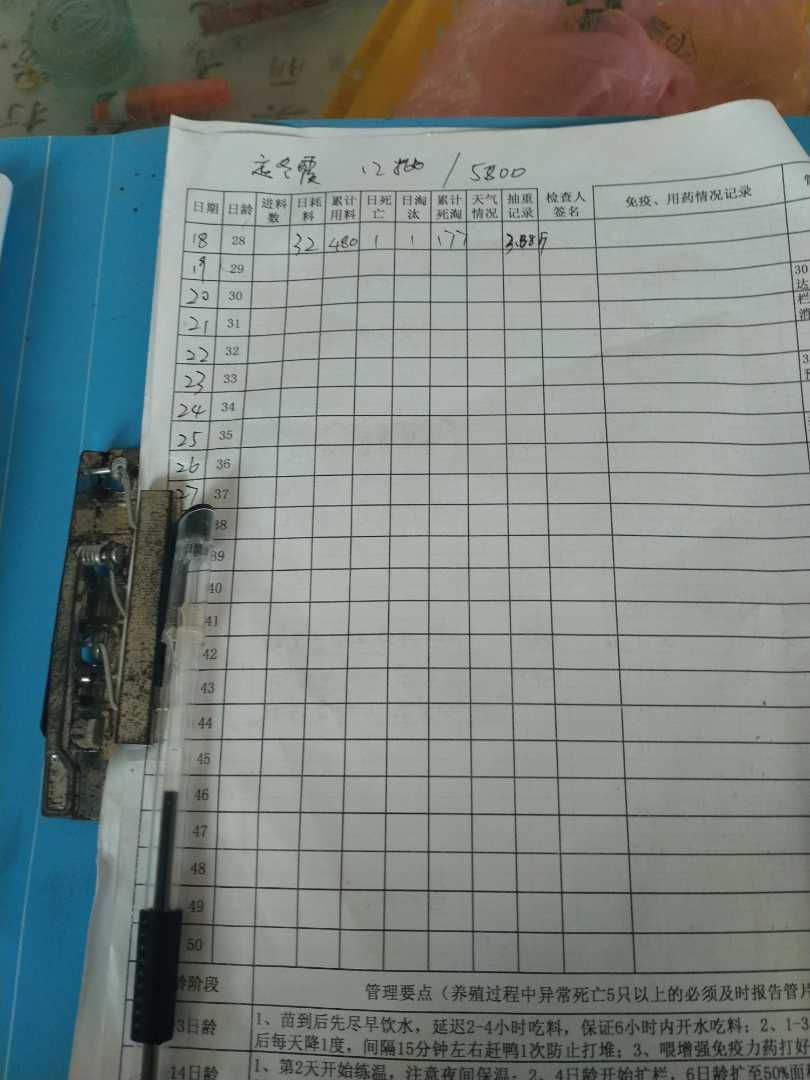 5800
日期 日龄 进料数 日耗料 累计用料 日死亡 日淘汰 累计死淘 天气情况 抽重记录 检查人签名 免疫、用药情况记录
18 28 32 480 1 1 177
19 29
20 30
21 31
22 32
23 33
24 34
25 35
26 36
27 37
38
39
40
41
42
43
44
45
46
47
48
49
50
龄阶段 管理要点（养殖过程中异常死亡5只以上的必须及时报告管片
3日龄 1、苗到后先尽早饮水，延迟2-4小时吃料，保证6小时内开水吃料；2、1-3
后每天降1度，间隔15分钟左右赶鸭1次防止打堆；3、喂增强免疫力药打好
14日龄 1、第2天开始练温，注意夜间保温；2、4日龄开始扩栏，6日龄扩至50%面